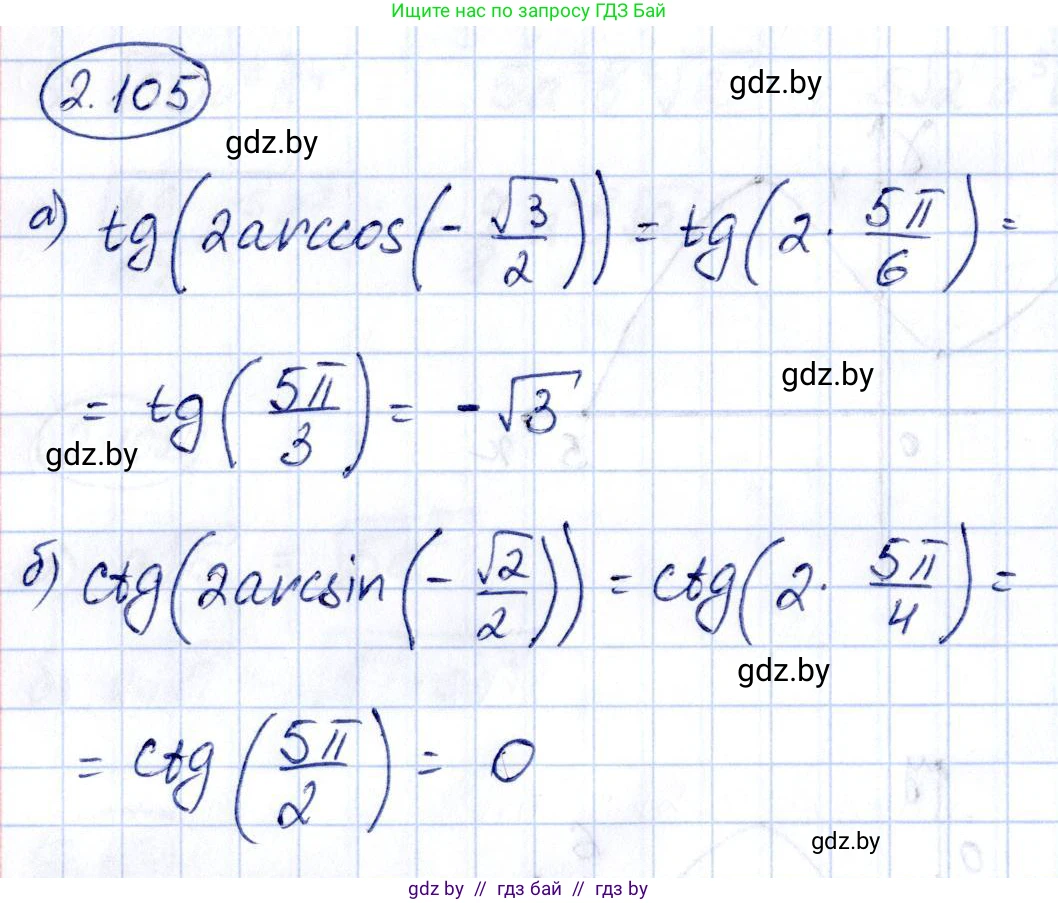 Ищите нас по запросу ГДЗ Бай
2.105
gdz.by
gdz.by
а) tg(2arccos(-√3/2)) = tg(2·5π/6) =
= tg(5π/3) = -√3
gdz.by
gdz.by
б) ctg(2arcsin(-√2/2)) = ctg(2·5π/4) =
gdz.by
= ctg(5π/2) = 0
gdz.by
gdz.by // гдз бай // гдз by